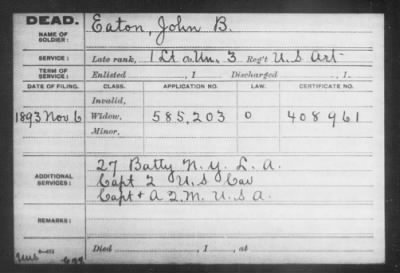 DEAD.
NAME OF SOLDIER: Eaton, John B.
SERVICE: Late rank, 1 Lt Co. Un. 3 Reg't U.S. Art
TERM OF SERVICE: Enlisted , 1 Discharged , 1.
DATE OF FILING. CLASS. APPLICATION NO. LAW. CERTIFICATE NO.
Invalid,
1893 Nov 6 Widow, 585,203 0 408961
Minor,
ADDITIONAL SERVICES: 27 Batty N.Y. L. A.
Capt 2 U.S. Cav
Capt & A Q.M. U.S.A.
REMARKS:
Died , 1 , at